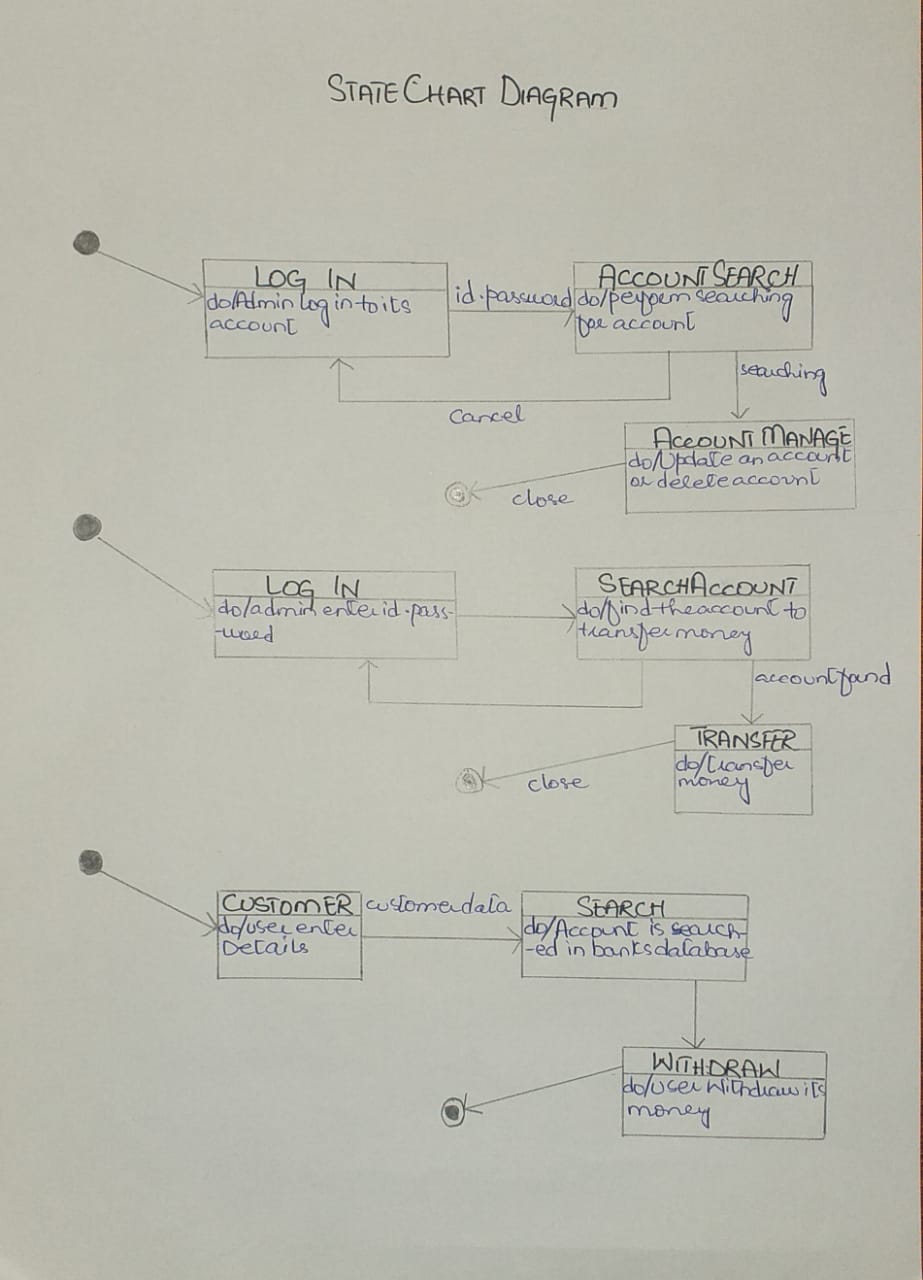 STATE CHART DIAGRAM
LOG IN
do/Admin log in to its
account
id.password
ACCOUNT SEARCH
do/perform searching
for account
searching
Cancel
ACCOUNT MANAGE
do/Update an account
or delete account
close
LOG IN
do/admin enter id.pass-
-word
SEARCH ACCOUNT
do/find the account to
transfer money
account found
TRANSFER
do/transfer
money
close
CUSTOMER
do/user enter
Details
customer data
SEARCH
do/Account is search-
-ed in banks database
WITHDRAW
do/user withdraw its
money